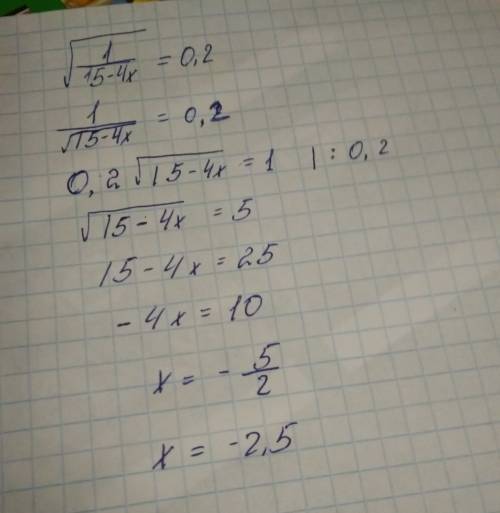 √(1/(15-4x)) = 0,2
1/√(15-4x) = 0,2
0,2 √(15-4x) = 1 | : 0,2
√(15-4x) = 5
15-4x = 25
-4x = 10
x = -5/2
x = -2,5